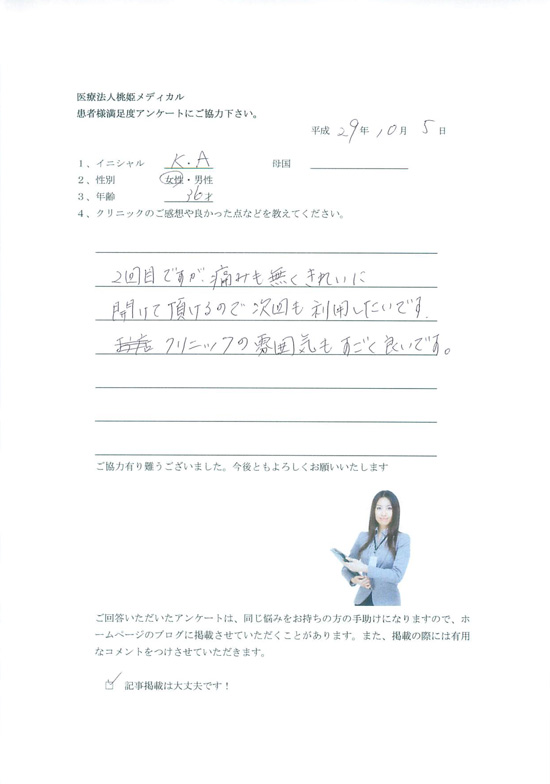 医療法人桃姫メディカル
患者様満足度アンケートにご協力下さい。
平成 29年 10月 5日
1、イニシャル K.A 母国
2、性別 女性・男性
3、年齢 36才
4、クリニックのご感想や良かった点などを教えてください。
2回目ですが、痛みも無くきれいに
開けて頂けるので次回も利用したいです。
クリニックの雰囲気もすごく良いです。
ご協力有り難うございました。今後ともよろしくお願いいたします
ご回答いただいたアンケートは、同じ悩みをお持ちの方の手助けになりますので、ホ
ームページのブログに掲載させていただくことがあります。また、掲載の際には有用
なコメントをつけさせていただきます。
記事掲載は大丈夫です！